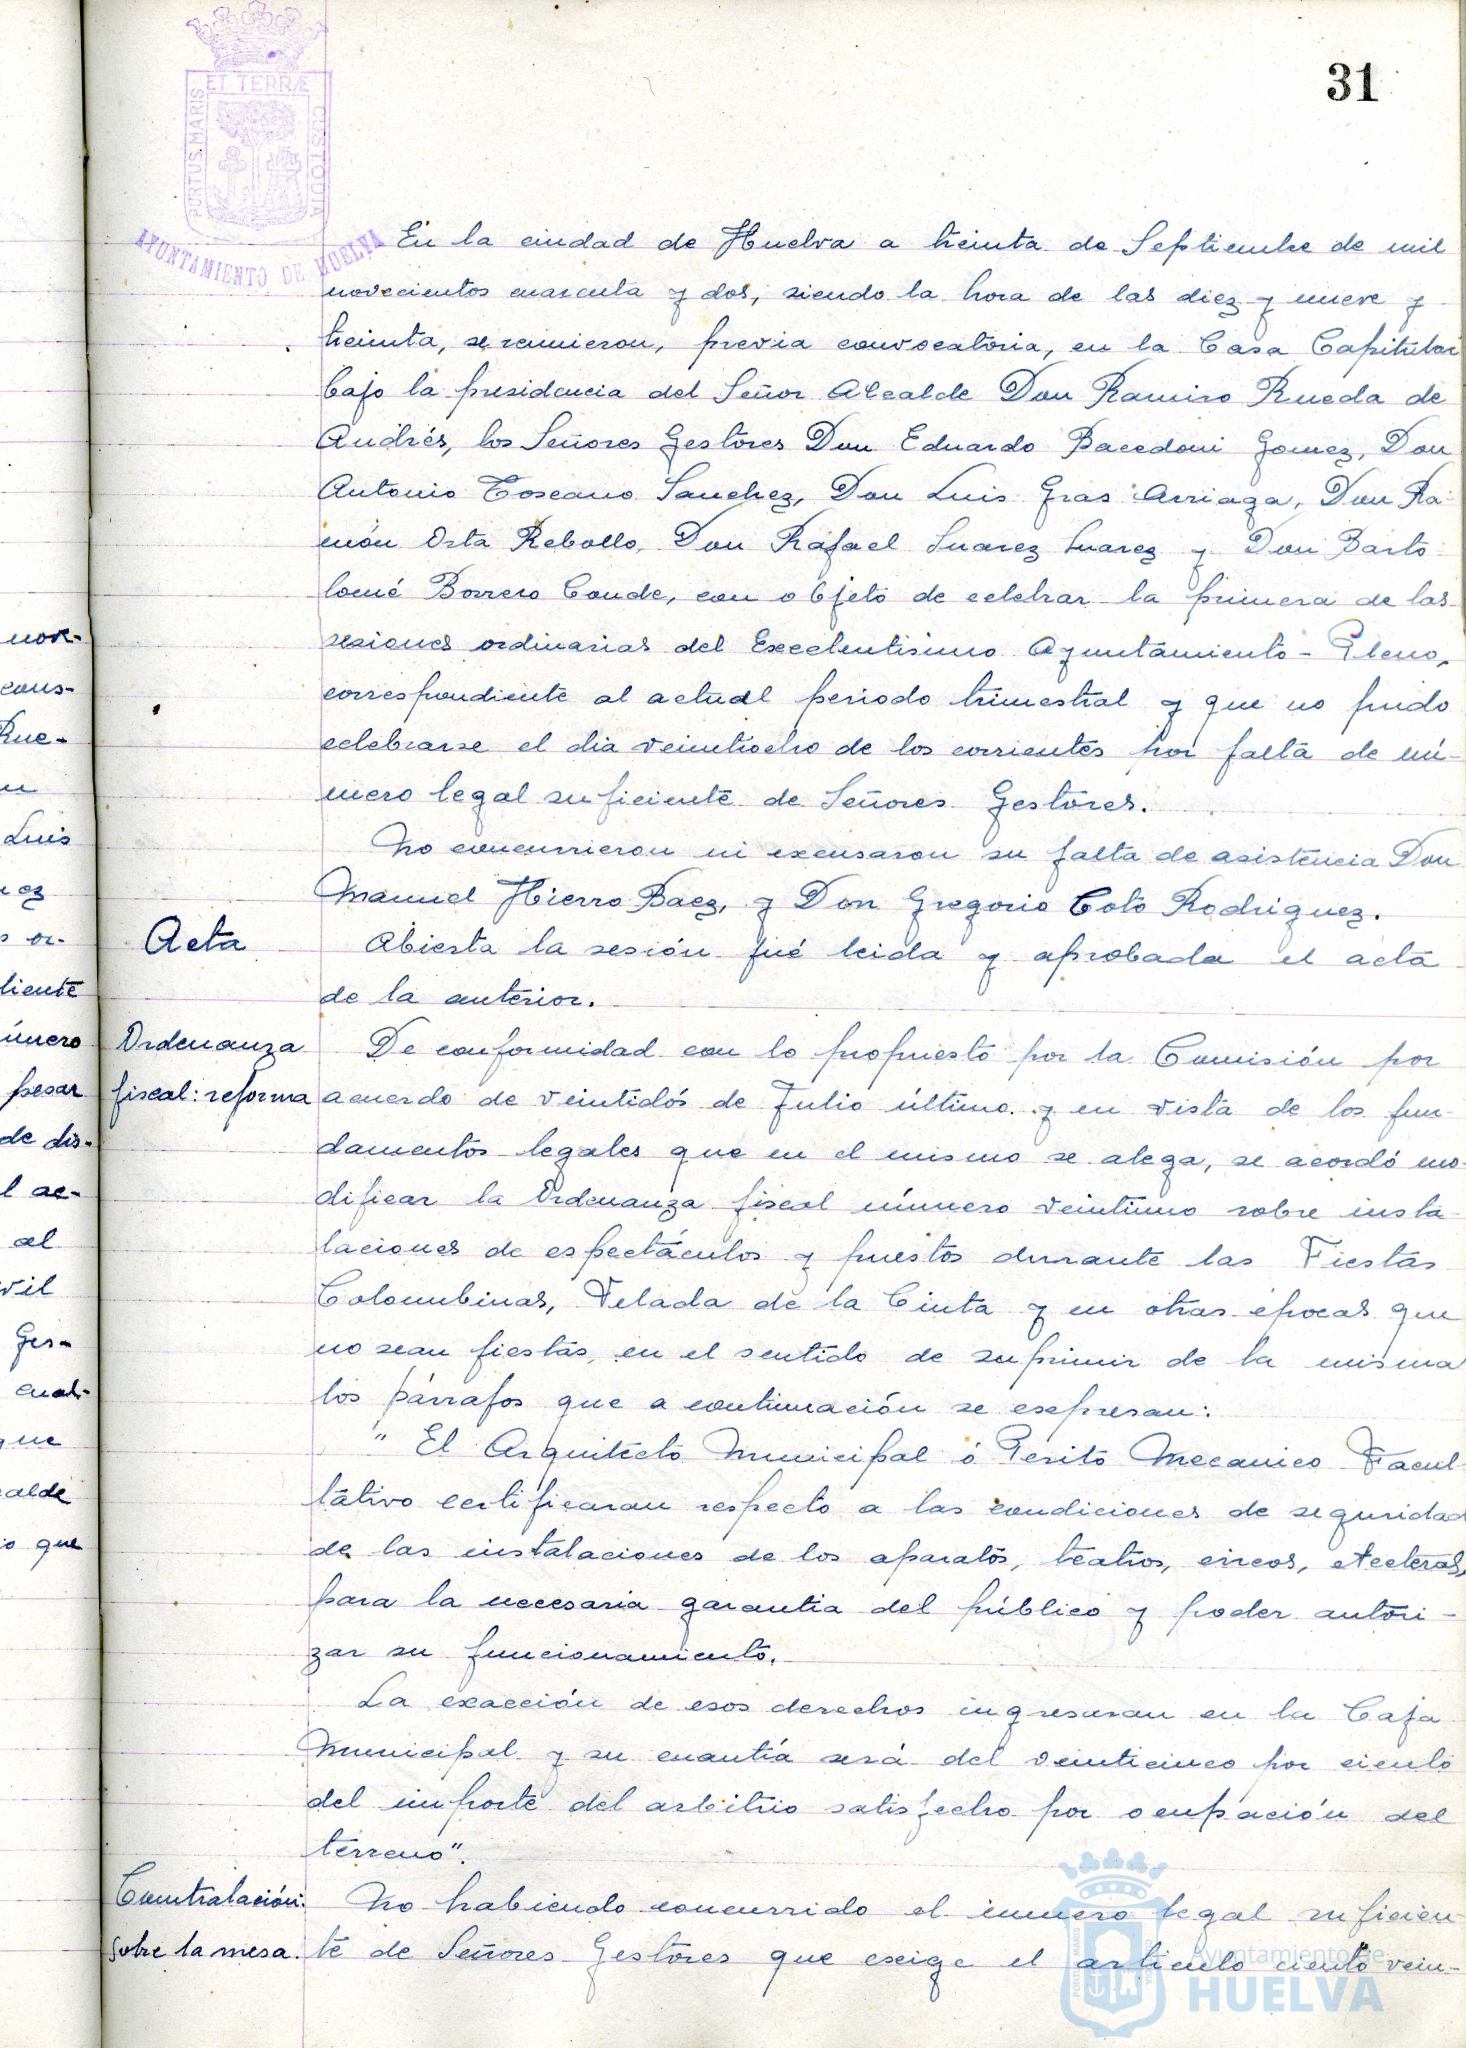 31
ET TERRÆ
PORTUS MARIS
CUSTODIA
AYUNTAMIENTO DE HUELVA
En la ciudad de Huelva a treinta de Septiembre de mil
novecientos cuarenta y dos, siendo la hora de las diez y nueve y
treinta, se reunieron, previa convocatoria, en la Casa Capitular
bajo la presidencia del Señor Alcalde Don Ramiro Rueda de
Andrés, los Señores Gestores Don Eduardo Bacedoni Gomez, Don
Antonio Toscano Sanchez, Don Luis Gras Arriaga, Don Ra-
món Orta Rebollo, Don Rafael Suarez Suarez y Don Barto-
lomé Borrero Conde, con objeto de celebrar la primera de las
sesiones ordinarias del Excelentisimo Ayuntamiento-Pleno,
correspondiente al actual periodo trimestral y que no pudo
celebrarse el dia veintiocho de los corrientes por falta de nú-
mero legal suficiente de Señores Gestores.
No concurrieron ni excusaron su falta de asistencia Don
Manuel Hierro Baez, y Don Gregorio Coto Rodriguez.
Acta
Abierta la sesión fué leida y aprobada el acta
de la anterior.
Ordenanza
fiscal: reforma
De conformidad con lo propuesto por la Comisión por
acuerdo de veintidós de Julio último y en vista de los fun-
damentos legales que en el mismo se alega, se acordó mo-
dificar la Ordenanza fiscal número veintiuno sobre insta-
laciones de espectáculos y puestos durante las Fiestas
Colombinas, Velada de la Cinta y en otras épocas que
no sean fiestas, en el sentido de suprimir de la misma
los párrafos que a continuación se expresan:
" El Arquitecto Municipal ó Perito Mecanico Facul-
tativo certificaran respecto a las condiciones de seguridad
de las instalaciones de los aparatos, teatros, circos, etecteras,
para la necesaria garantia del público y poder autori-
zar su funcionamiento.
La exacción de esos derechos ingresaran en la Caja
Municipal y su cuantía será del veinticinco por ciento
del importe del arbitrio satisfecho por ocupación del
terreno".
Contratación:
sobre la mesa.
No habiendo concurrido el numero legal suficien-
te de Señores Gestores que exige el articulo ciento vein-
nove-
cons-
Rue-
Luis
or-
diente
úmero
pesar
de dis-
l ac-
al
vil
Ges-
cual-
que
calde
que
Ayuntamiento de
HUELVA